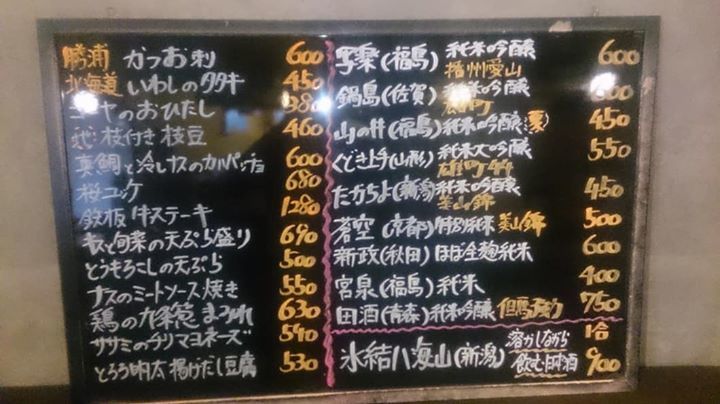 勝浦 かつお刺 600
北海道 いわしのタタキ 450
のおひたし 380
枝付き枝豆 460
真鯛と冷しナスのカルパッチョ 600
桜ユッケ 680
鉄板牛ステーキ 1280
旬菜の天ぷら盛り 690
とうもろこしの天ぷら 500
ナスのミートソース焼き 550
鶏の九条葱まみれ 630
ササミのウリマヨネーズ 540
とろろ明太揚げだし豆腐 530
写楽(福島)純米吟醸 播州愛山 600
鍋島(佐賀)純米吟醸
山の井(福島)純米吟醸 夏 450
くどき上手(山形)純米大吟醸 雄町44 550
たかちよ(新潟)純米吟醸 美山錦 450
蒼空(京都)特別純米 美山錦 500
新政(秋田)ほぼ全麹純米 600
宮泉(福島)純米 400
田酒(青森)純米吟醸 但馬強力 750
氷結八海山(新潟) 溶かしながら飲む日本酒 一合 900